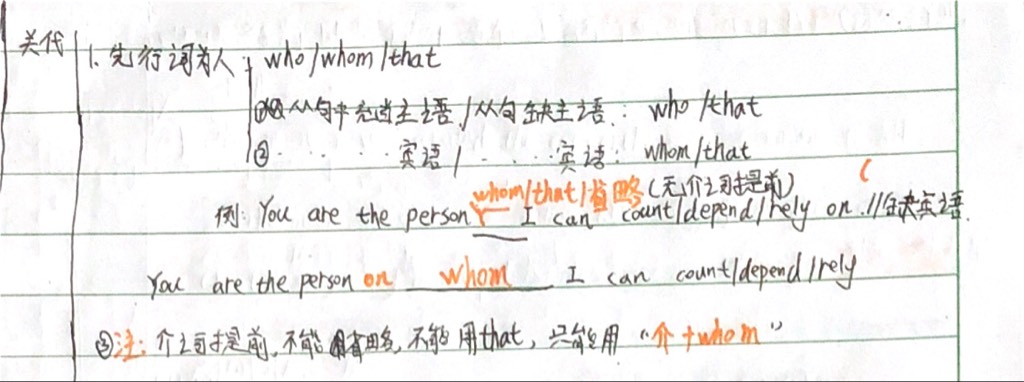 关代
1. 先行词为人: who/whom/that
① 从句中充当主语/从句缺主语: who/that
② ........宾语/........宾语: whom/that
whom/that/省略(无介词提前)
例: You are the person ____ I can count/depend/rely on. //缺宾语.
You are the person on whom I can count/depend/rely
③注: 介词提前, 不能省略, 不能用that, 只能用 "介+whom"